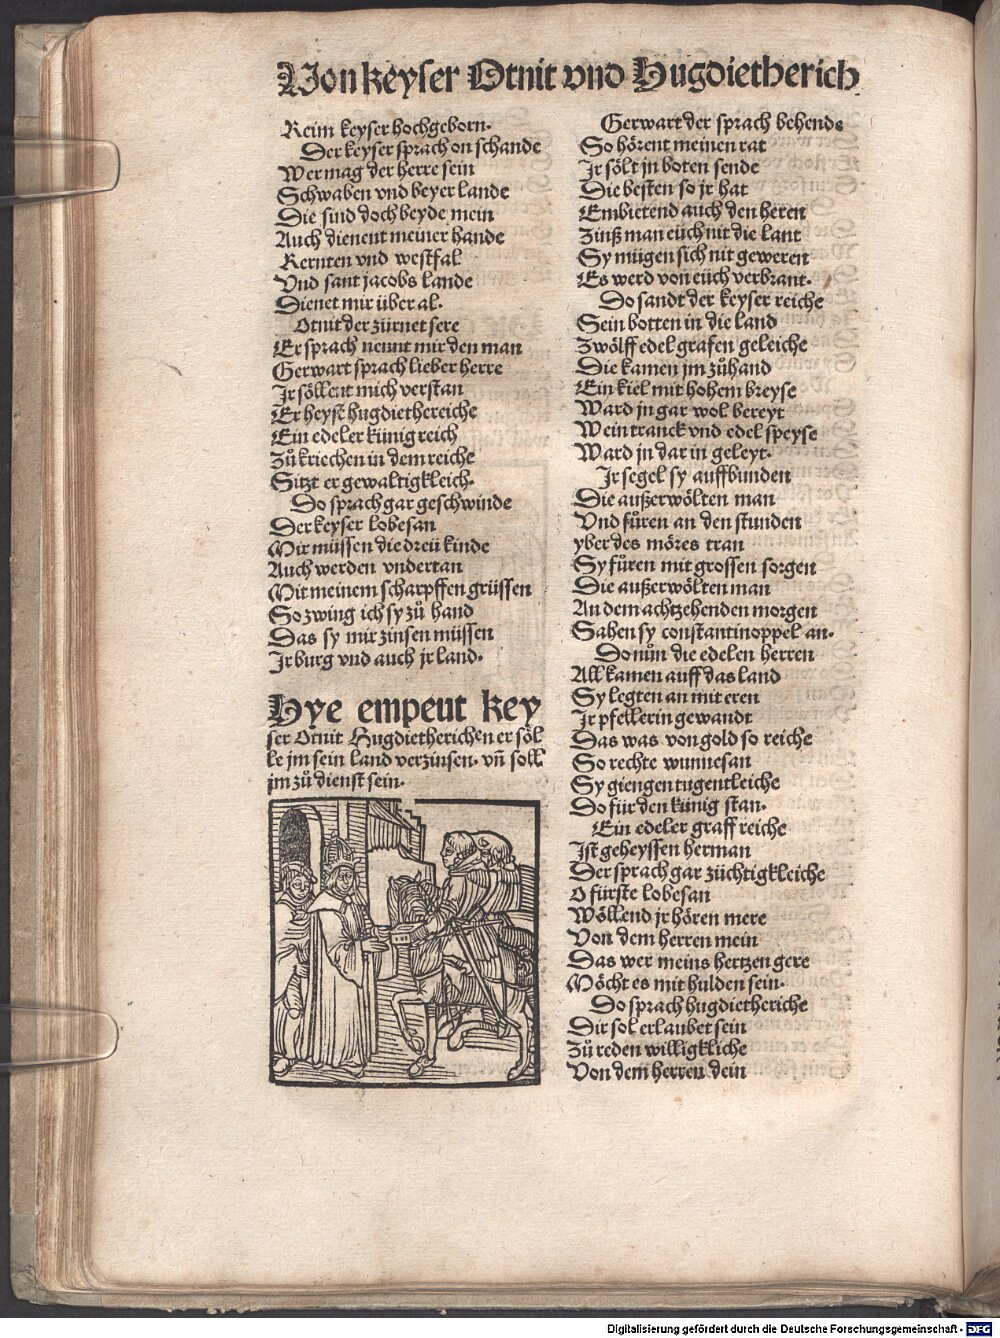 Von keyser Otnit vnd Hugdietherich
Keim keyser hochgeborn.
Der keyser sprach on schande
Wer mag der herre sein
Schwaben vnd beyer lande
Die sind doch beyde mein
Auch dienent meiner hande
Kernten vnd westfal
Vnd sant jacobs lande
Dienet mir über al.
Otnit der zürnet sere
Er sprach nennt mir den man
Gerwart sprach lieber herre
Ir söllent mich verstan
Er heyst hugdiethereiche
Ein edeler künig reich
Zů kriechen in dem reiche
Sitzt er gewaltigkleich.
Do sprach gar geschwinde
Der keyser lobesan
Mir müssen die dreü kinde
Auch werden vndertan
Mit meinem scharpffen grüssen
So zwing ich sy zů hand
Das sy mir zinsen müssen
Ir burg vnd auch jr land.
Hye empeut key
ser Otnit Hugdietherichen er söl
le jm sein land verzinsen. vñ soll
jm zů dienst sein.
Gerwart der sprach behende
So hörent meinen rat
Ir sölt jn boten sende
Die besten so jr hat
Embietend auch den heren
Zinß man eüch nit die lant
Sy mügen sich nit geweren
Es werd von eüch verbrant.
Do sandt der keyser reiche
Sein botten in die land
Zwölff edel grafen geleiche
Die kamen jm zůhand
Ein kiel mit hohem breyse
Ward jn gar wol bereyt
Wein tranck vnd edel speyse
Ward jn dar in geleyt.
Ir segel sy auffbunden
Die außerwölten man
Vnd fůren an den stunden
yber des möres tran
Sy fůren mit grossen sorgen
Die außerwölten man
An dem achtzehenden morgen
Sahen sy constantinoppel an.
Do nůn die edelen herren
All kamen auff das land
Sy legten an mit eren
Ir pfellerin gewandt
Das was von gold so reiche
So rechte wunnesan
Sy giengen tugentleiche
Do für den künig stan.
Ein edeler graff reiche
Ist geheyssen herman
Der sprach gar züchtigkleiche
O fürste lobesan
Wöllend jr hören mere
Von dem herren mein
Das wer meins hertzen gere
Möcht es mit hulden sein.
Do sprach hugdietheriche
Dir sol erlaubet sein
Zů reden willigkliche
Von dem herren dein
Digitalisierung gefördert durch die Deutsche Forschungsgemeinschaft - DFG